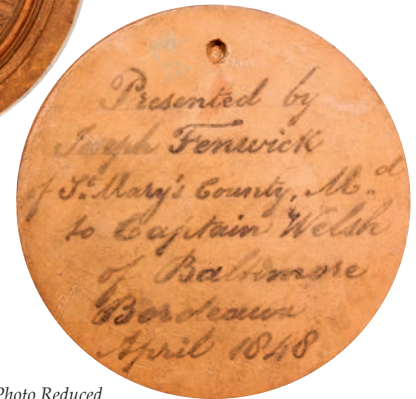 Presented by
Joseph Fenwick
of St. Mary's County, Md
to Captain Welsh
of Baltimore
Bordeaux
April 1848
Photo Reduced